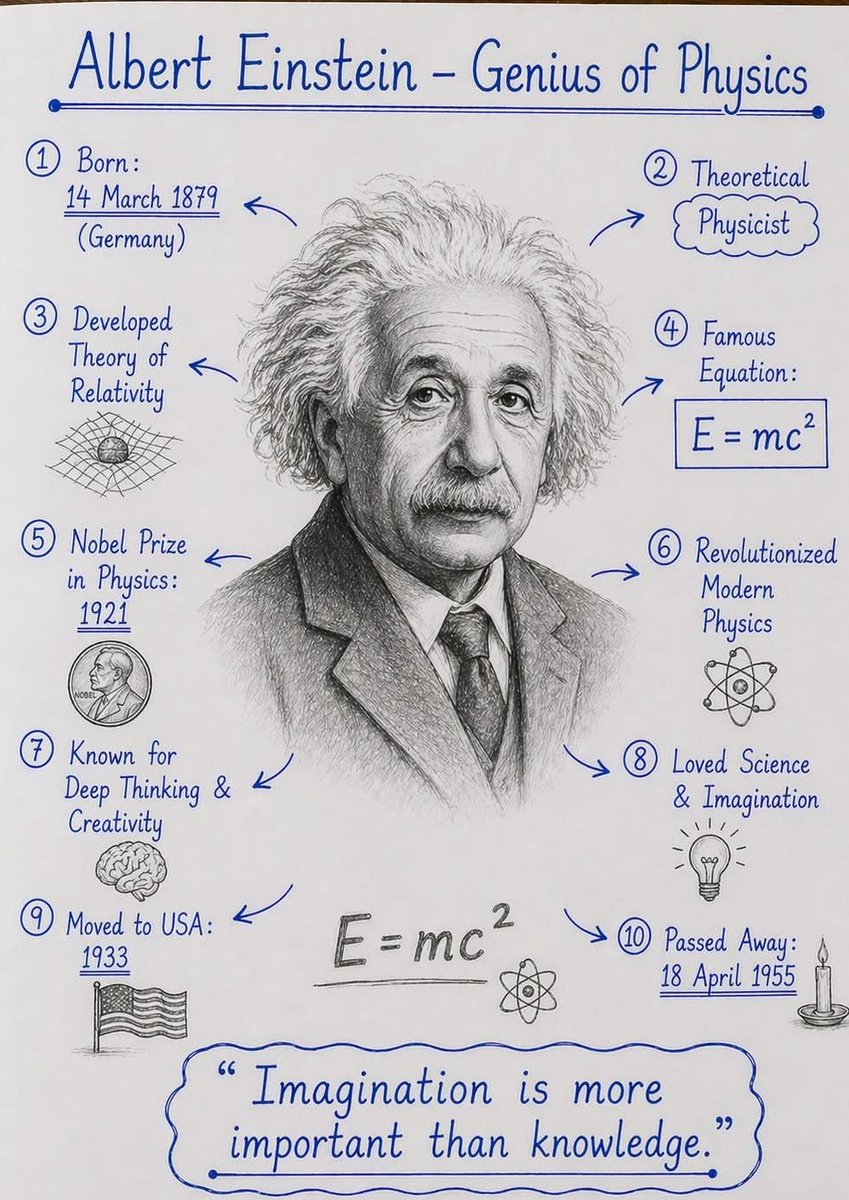 Albert Einstein – Genius of Physics
① Born:
14 March 1879
(Germany)
② Theoretical
Physicist
③ Developed
Theory of
Relativity
④ Famous
Equation:
E = mc²
⑤ Nobel Prize
in Physics:
1921
NOBEL
⑥ Revolutionized
Modern
Physics
⑦ Known for
Deep Thinking &
Creativity
⑧ Loved Science
& Imagination
⑨ Moved to USA:
1933
E = mc²
⑩ Passed Away:
18 April 1955
“ Imagination is more
important than knowledge.”